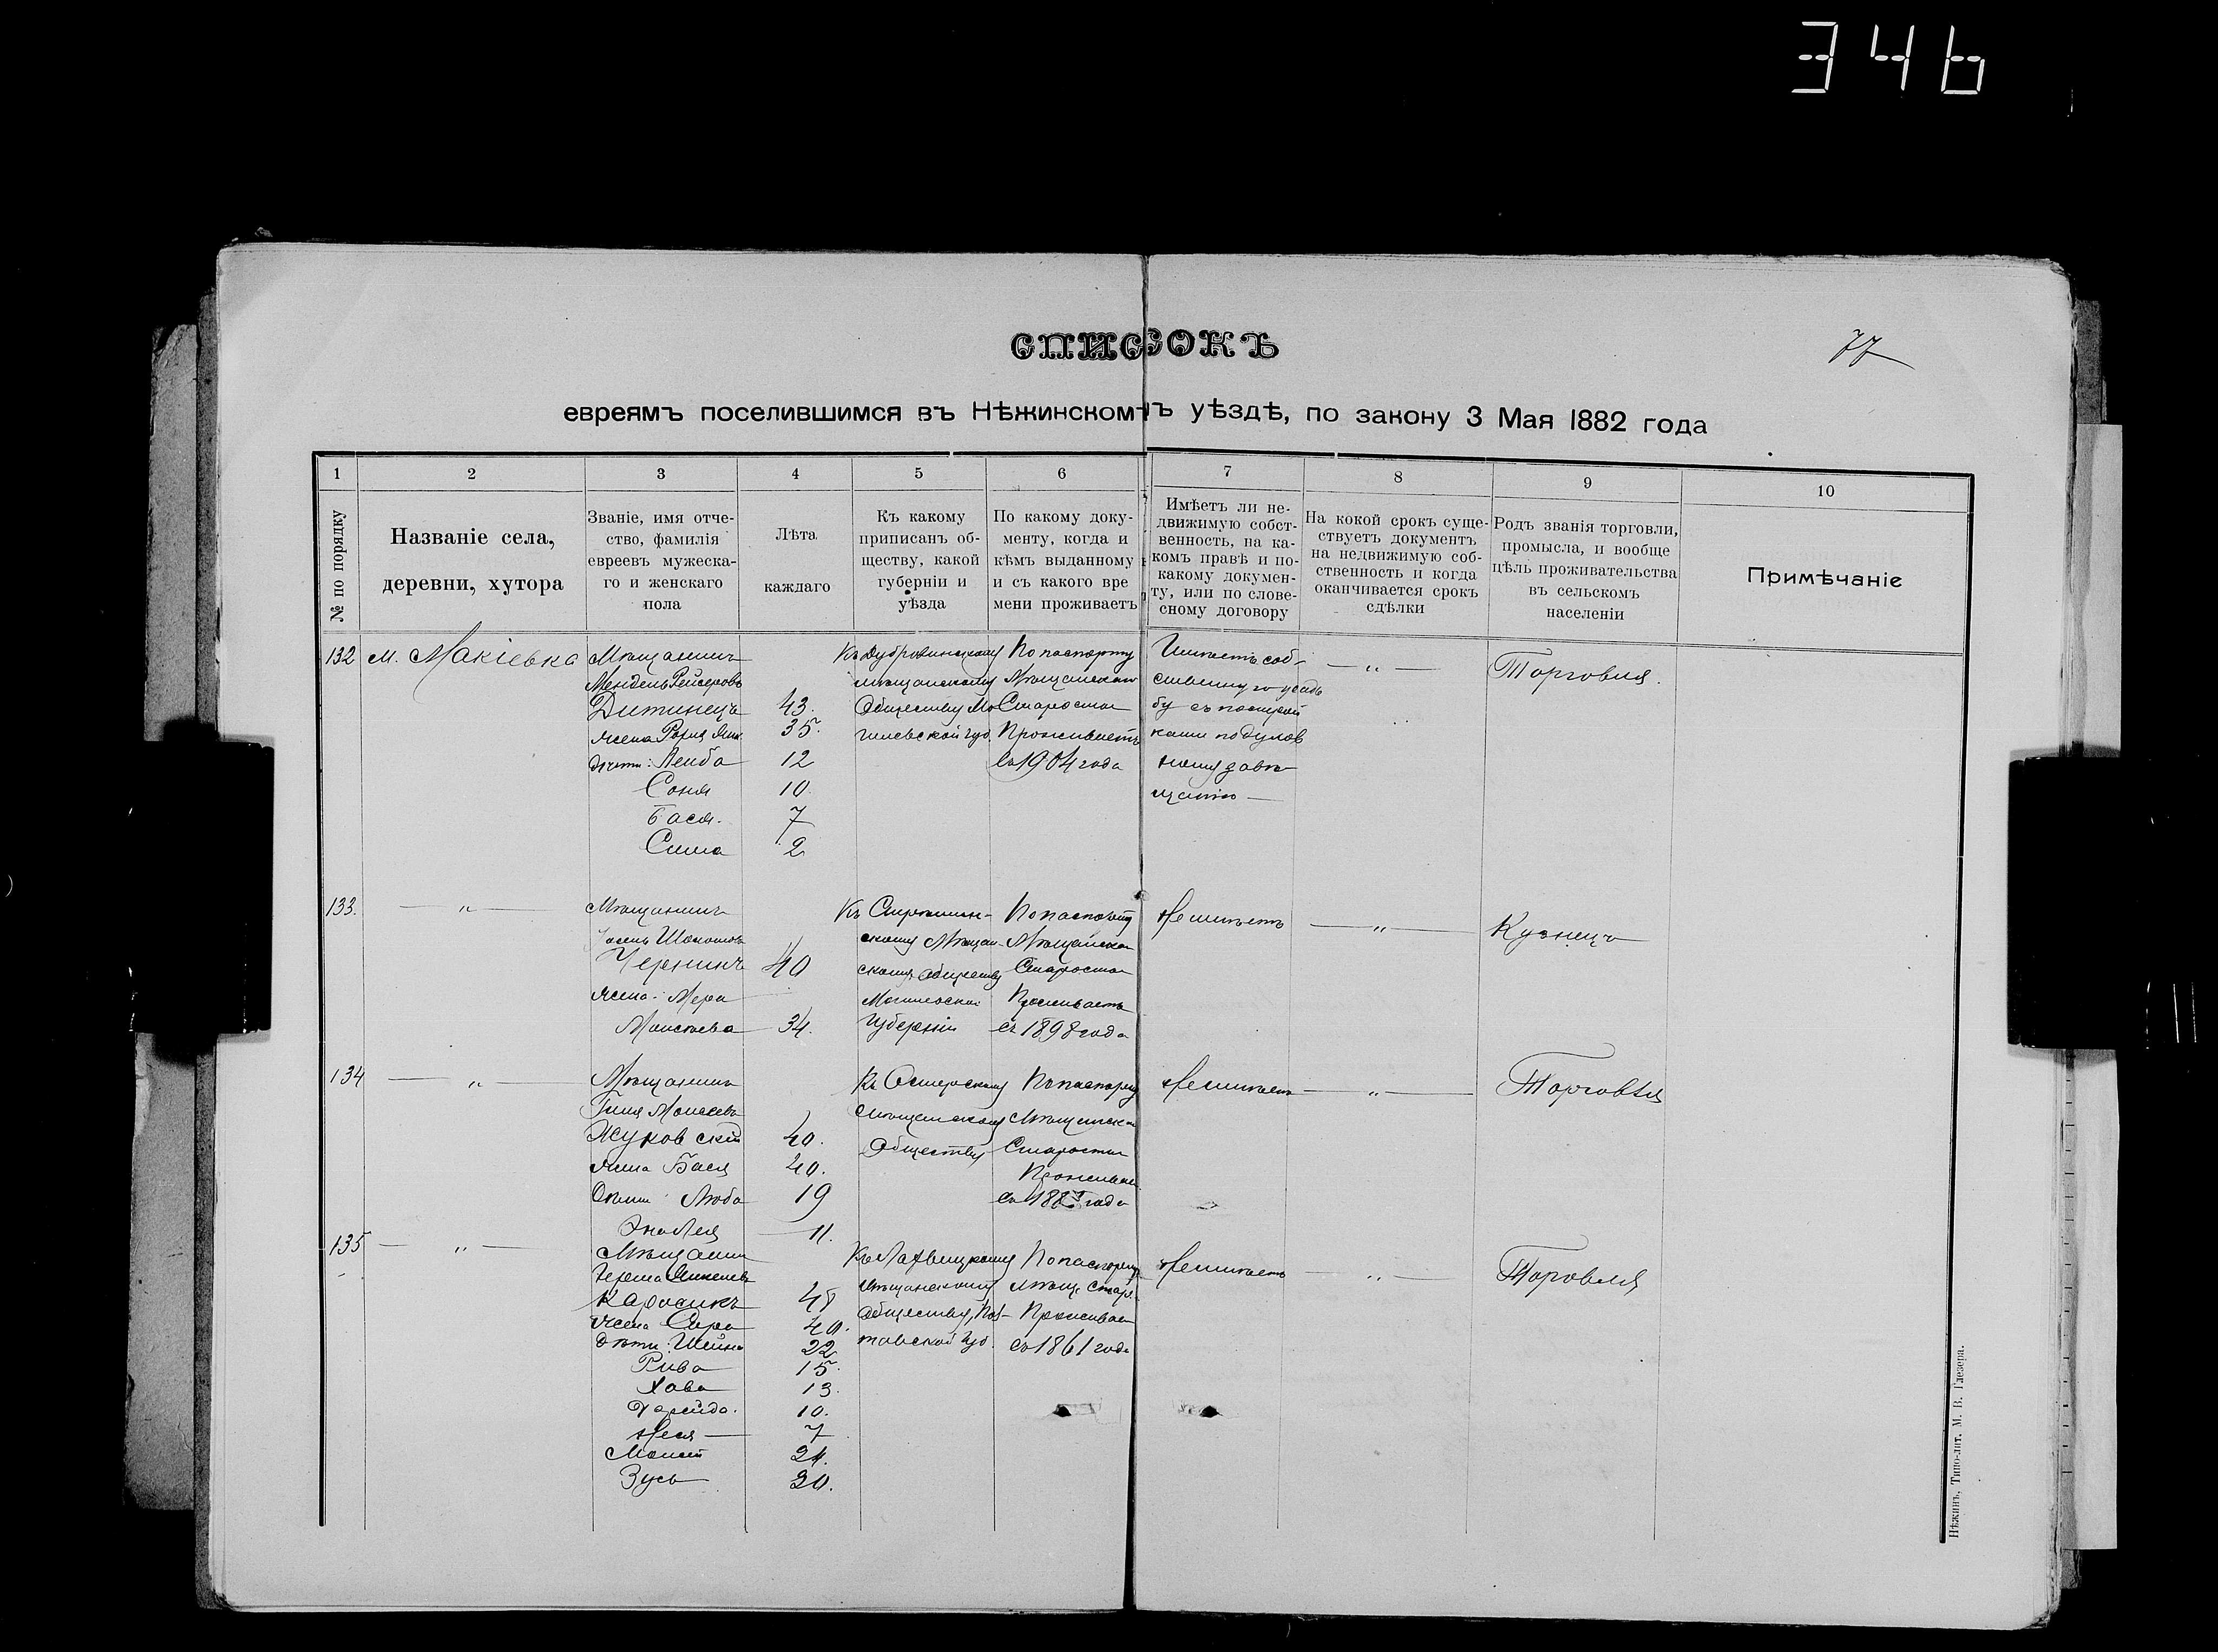 346
77
СПИСОКЪ
евреямъ поселившимся въ Нѣжинскомъ уѣздѣ, по закону 3 Мая 1882 года
1
№ по порядку
2
Названіе села,
деревни, хутора
3
Званіе, имя отче-
ство, фамилія
евреевъ мужеска-
го и женскаго
пола
4
Лѣта
каждаго
5
Къ какому
приписанъ об-
ществу, какой
губерніи и
уѣзда
6
По какому доку-
менту, когда и
кѣмъ выданному
и съ какого вре
мени проживаетъ
7
Имѣетъ ли не-
движимую собст-
венность, на ка-
комъ правѣ и по-
какому докумен-
ту, или по слове-
сному договору
8
На кокой срокъ суще-
ствуетъ документъ
на недвижимую соб-
ственность и когда
оканчивается срокъ
сдѣлки
9
Родъ званія торговли,
промысла, и вообще
цѣль проживательства
въ сельскомъ
населеніи
10
Примѣчаніе
132
м. Макіевка
Мѣщанинъ
Мендель Лейзеровъ
Дитинецъ 43.
жена 35.
дѣти: Лейба 12
Соня 10.
Бася. 7
Сима 2
Къ Дубровинскому
мѣщанскому
Обществу Мо
гилевской губ.
По паспорту
Мѣщанскаго
Старосты
Проживаетъ
съ 1904 года
Имѣетъ соб-
ственную усадь
бу съ построй
ками по духов
ному завѣ
щанію —
— " —
Торговля.
133.
— " —
Мѣщанинъ
Чернинъ 40
жена: Мера
Моисѣева 34.
Къ
скому Мѣщан-
скому обществу
Могилевской
Губерніи
По паспорту
Мѣщанскаго
Старосты
Проживаетъ
съ 1898 года
Не имѣетъ
— " —
Кузнецъ
134
— " —
Мѣщанинъ
Моисеевъ
Жуковскій 40.
жена Бася 40.
Дѣти: Люба 19
11.
Къ Остерскому
мѣщанскому
Обществу
По паспорту
Мѣщанскаго
Старосты
Проживает
съ года
Не имѣетъ
— " —
Торговля
135
— " —
Мѣщанин
Карасикъ 48
жена Сара 40.
дѣти: Шейна 22
Рива 15.
Хава 13.
10.
Неся — 7
Моисей 24.
Зусь 20.
Къ Лохвицкому
мѣщанскому
обществу, Пол-
тавской губ.
По паспорту
мѣщ. Стар.
Проживает
съ 1861 года
Не имѣетъ
— " —
Торовля
Нѣжинъ, Типо-лит. М. В. Глезера.